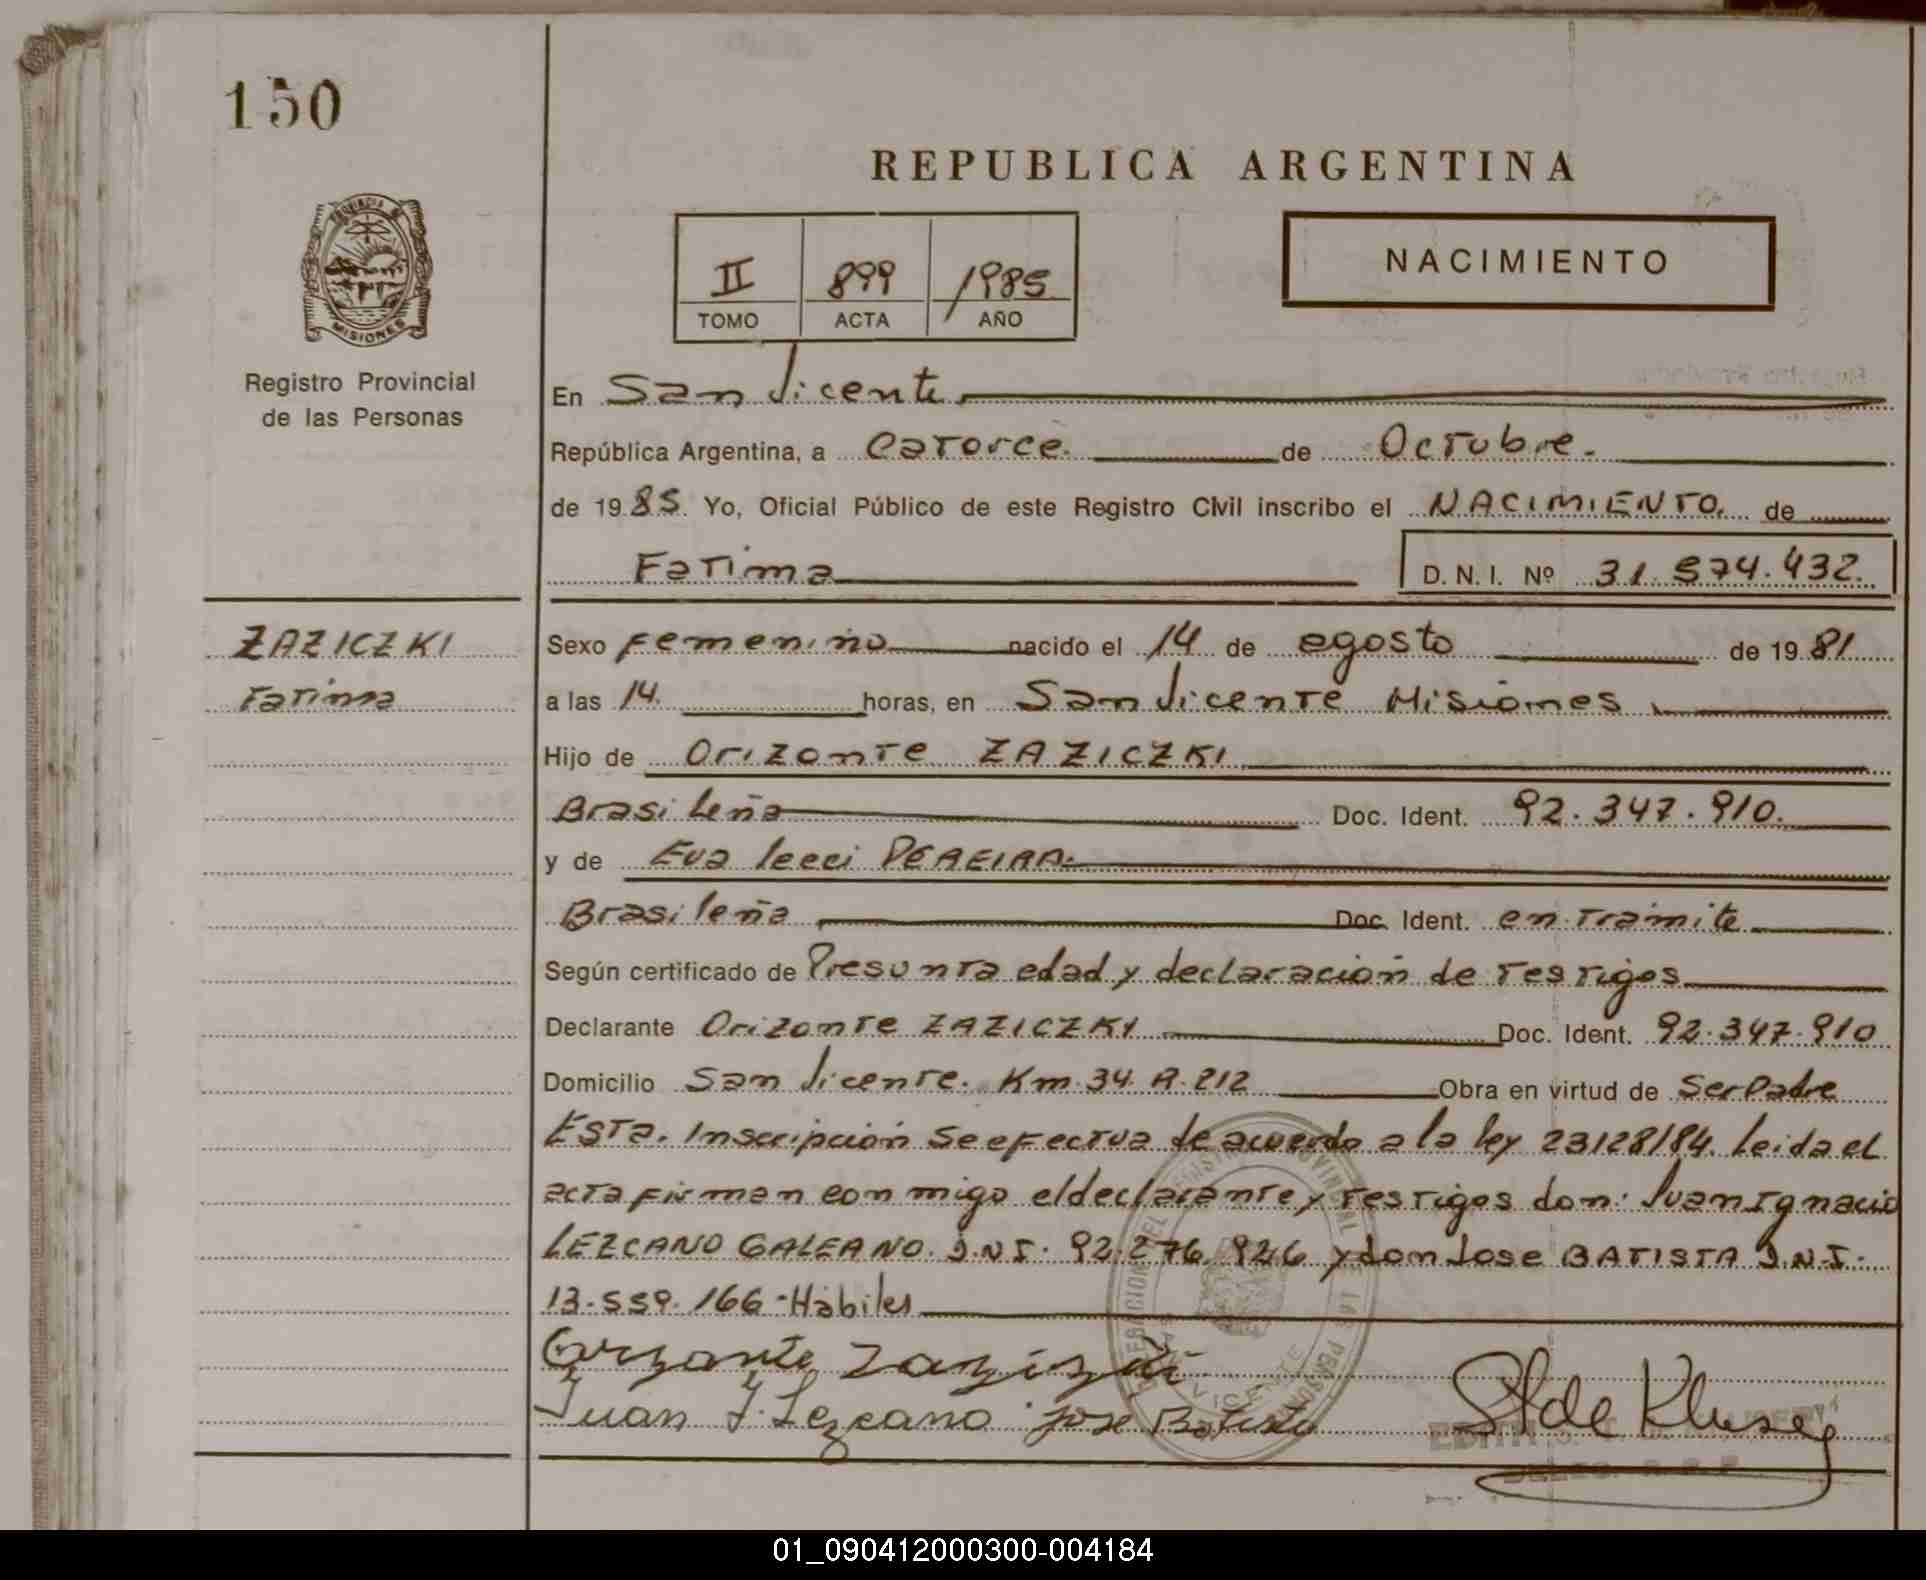 150
REPUBLICA ARGENTINA
PROVINCIA DE
MISIONES
Registro Provincial
de las Personas
II 899 1985
TOMO ACTA AÑO
NACIMIENTO
En San Vicente
República Argentina, a Catorce. de Octubre.
de 1985. Yo, Oficial Público de este Registro Civil inscribo el NACIMIENTO. de
Fatima D. N. I. Nº 31.574.432.
ZAZICZKI
Fatima
Sexo femenino nacido el 14 de agosto de 1981
a las 14. horas, en San Vicente Misiones
Hijo de Orizonte ZAZICZKI
Brasileña Doc. Ident. 92.347.910.
y de Eva lecci PEREIRA.
Brasileña Doc. Ident. en tramite
Según certificado de Presunta edad y declaración de testigos
Declarante Orizonte ZAZICZKI Doc. Ident. 92.347.910
Domicilio San Vicente. Km. 34 R. 212 Obra en virtud de Ser Padre
Esta. Inscripción se efectua de acuerdo a la ley 23128/84. Leida el
acta firman conmigo el declarante y testigos don: Juan Ignacio
LEZCANO GALEANO. D.N.I. 92.276.926 y don Jose BATISTA D.N.I.
13.559.166-Hábiles
Orizonte Zaziczki
Juan I. Lezcano Jose Batista
EDITH
VICENTE
01_090412000300-004184